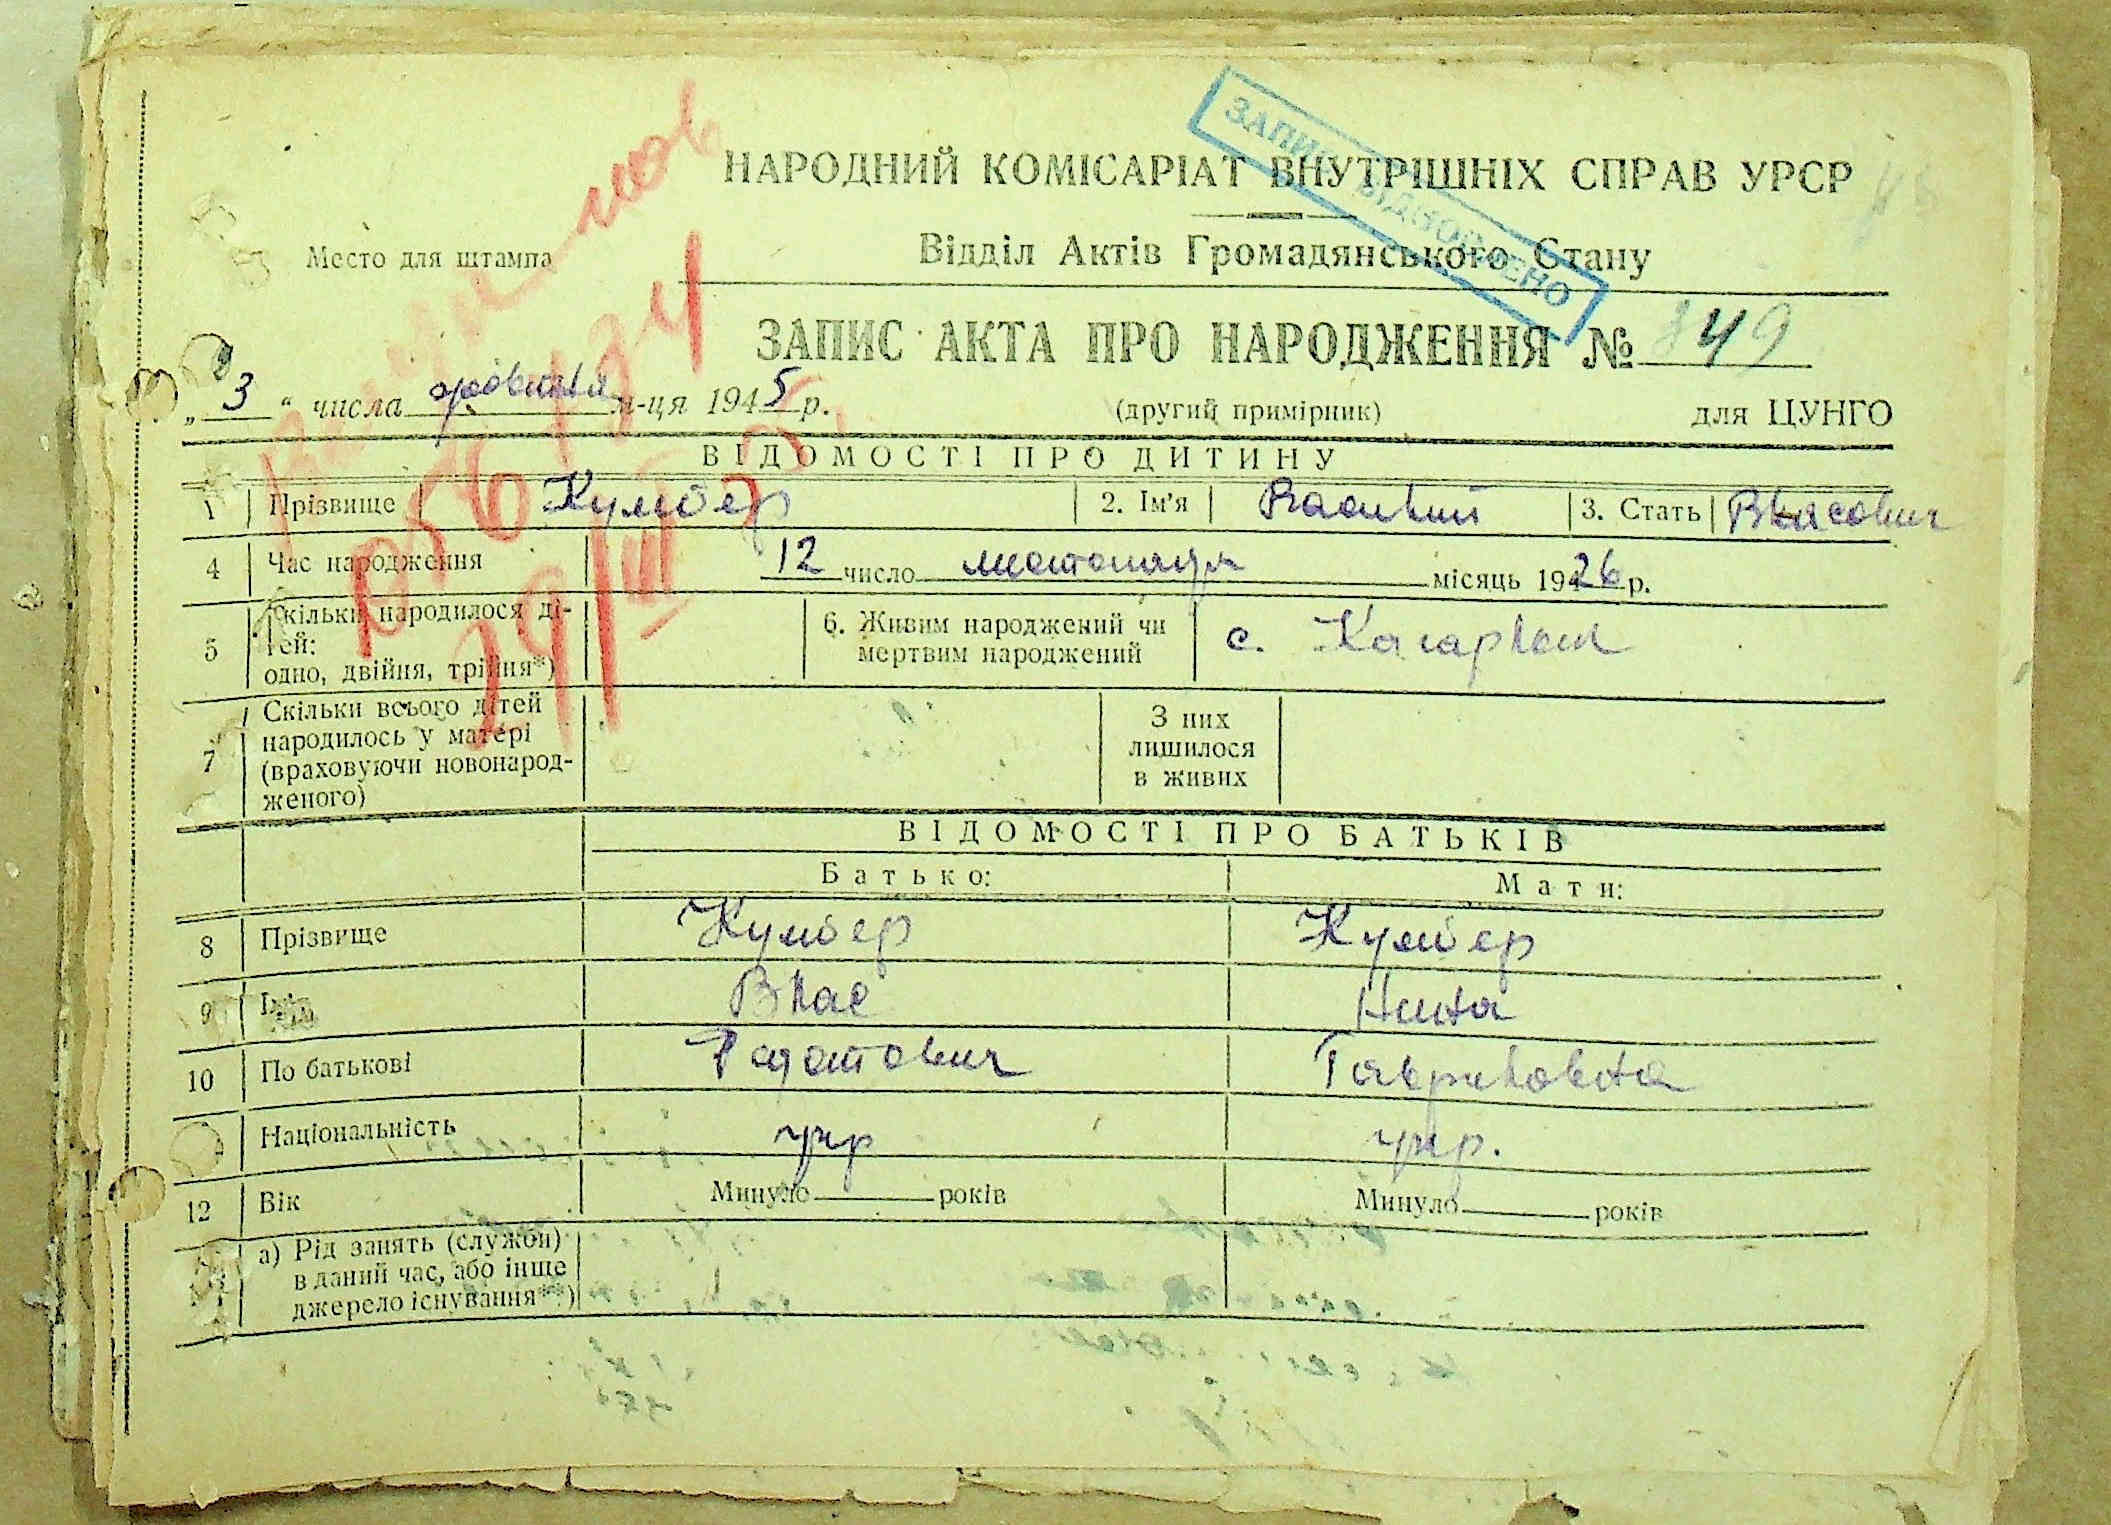 ЗАПИС ВІДНОВЛЕНО
НАРОДНИЙ КОМІСАРІАТ ВНУТРІШНІХ СПРАВ УРСР
Место для штампа
Відділ Актів Громадянського Стану
ЗАПИС АКТА ПРО НАРОДЖЕННЯ № 349
„3“ числа жовтня м-ця 1945 р. (другий примірник) для ЦУНГО
ВІДОМОСТІ ПРО ДИТИНУ
1 Прізвище Кумбер 2. Ім'я 3. Стать Власович
4 Час народження 12 число листопада місяць 1926 р.
5 Скільки народилося дітей: одно, двійня, трійня*) 6. Живим народжений чи мертвим народжений с. Кагарлик
7 Скільки всього дітей народилось у матері (враховуючи новонародженого) З них лишилося в живих
ВІДОМОСТІ ПРО БАТЬКІВ
Батько: Мати:
8 Прізвище Кумбер Кумбер
9 Ім'я Влас Нина
10 По батькові Гавриловна
Національність укр укр.
12 Вік Минуло років Минуло років
а) Рід занять (служби) в даний час, або інше джерело існування**)